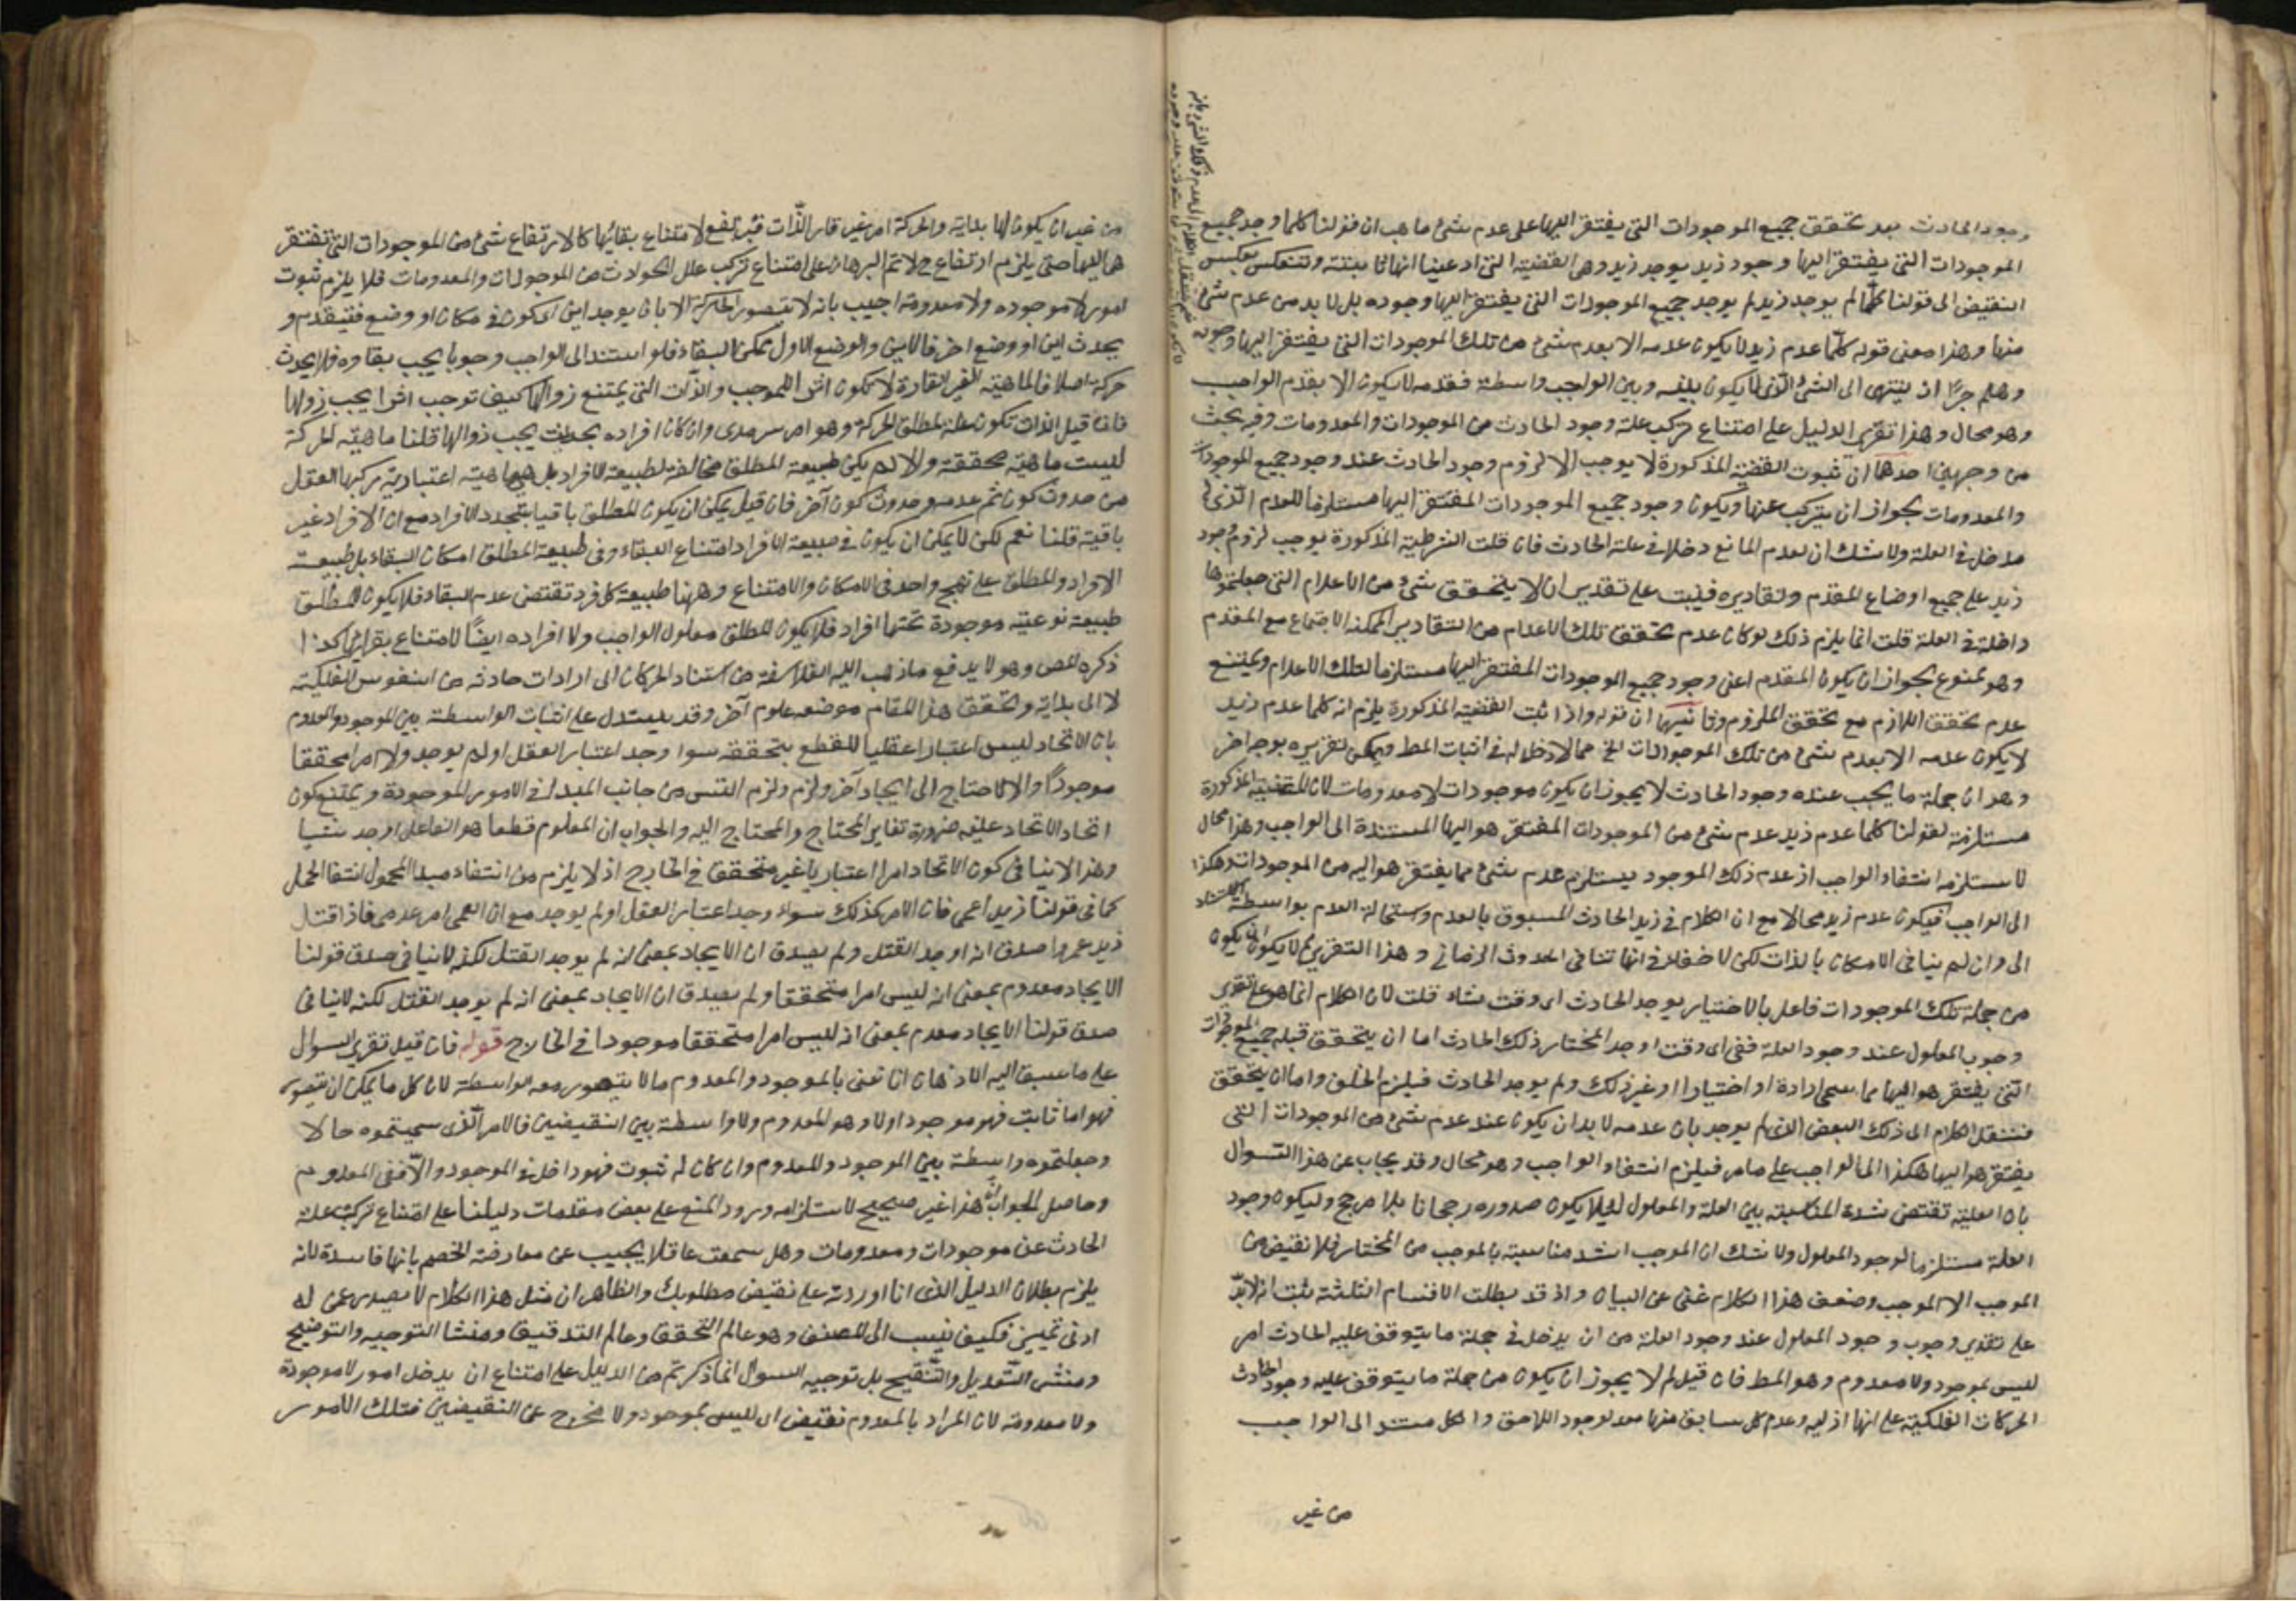 وجود الحادث بعد تحقق جميع الموجودات التى يفتقر اليها على عدم شئ ما هب ان قولنا كلما وجد جميع
الموجودات التى يفتقر اليها وجود زيد يوجد زيد وهى القضية التى ادعينا انها ثابتة وتنعكس بعكس
النقيض الى قولنا كلما لم يوجد زيد لم يوجد جميع الموجودات التى يفتقر اليها وجوده بل لا بد من عدم شئ
منها وهذا معنى قوله كلما عدم زيد لا يكون عدمه الا بعدم شئ من تلك الموجودات التى يفتقر اليها وجوده
وهلم جرا اذ ينتهى الى الشئ الذى لا يكون بينه وبين الواجب واسطة فعدمه لا يكون الا بعدم الواجب
وهو محال وهذا تقرير الدليل على امتناع تركب علة وجود الحادث من الموجودات والمعدومات وفيه بحث
من وجهين احدهما ان ثبوت القضية المذكورة لا يوجب الا لزوم وجود الحادث عند وجود جميع الموجودات
والمعدومات بجواز ان يتركب عنها ويكون وجود جميع الموجودات المفتقر اليها مستلزما للعدم الذى له
مدخل فى العلة ولا شك ان لعدم المانع دخلا فى علة الحادث فان قلت الشرطية المذكورة يوجب لزوم وجود
زيد على جميع اوضاع المقدم وتقاديره فيثبت على تقدير ان لا يتحقق شئ من الاعدام التى جعلتموها
داخلة فى العلة قلت انما يلزم ذلك لو كان عدم تحقق تلك الاعدام من التقادير الممكنة الاجتماع مع المقدم
وهو ممنوع بجواز ان يكون المقدم اعنى وجود جميع الموجودات المفتقر اليها مستلزما لتلك الاعدام ويمتنع
عدم تحقق اللازم مع تحقق الملزوم وثانيهما ان قوله واذا ثبت القضية المذكورة يلزم انه كلما عدم زيد
لا يكون عدمه الا بعدم شئ من تلك الموجودات الخ مما لا دخل له فى اثبات المط ويمكن تقريره بوجه اخر
وهو ان جملة ما يجب عنده وجود الحادث لا يجوز ان يكون موجودات لا معدومات لان القضية المذكورة
مستلزمة لقولنا كلما عدم زيد عدم شئ من الموجودات المفتقر هو اليها المستندة الى الواجب وهذا محال
لاستلزمه انتفاء الواجب اذ عدم ذلك الموجود يستلزم عدم شئ مما يفتقر هو اليه من الموجودات وهكذا
الى الواجب فيكون عدم زيد محالا مع ان الكلام فى زيد الحادث المسبوق بالعدم واستحالة العدم بواسطة استناد
الى وان لم ينافى الامكان بالذات لكن لا خفاء فى انها تنافى الحدوث الزمانى وهذا التقرير لم لا يكون ان يكون
من جملة تلك الموجودات فاعل بالاختيار يوجد الحادث اى وقت شاء قلت لان الكلام انما هو على تقدير
وجوب المعلول عند وجود العلة ففى اى وقت اوجد المختار ذلك الحادث اما ان يتحقق قبله جميع الموجودات
التى يفتقر هو اليها مما سمى ارادة او اختيارا او غير ذلك ولم يوجد الحادث فيلزم الخلف واما ان يتحقق
فننقل الكلام الى ذلك البعض الذى لم يوجد بان عدمه لا بد ان يكون عند عدم شئ من الموجودات التى
يفتقر هو اليها هكذا الى الواجب على ما مر فيلزم انتفاء الواجب وهو محال وقد يجاب عن هذا السوال
بان العلية تقتضى شدة المناسبة بين العلة والمعلول لئلا يكون صدوره رجحانا بلا مرجح وليكون وجود
العلة مستلزما لوجود المعلول ولا شك ان الموجب اشد مناسبة بالموجب من المختار فلا نقيض من
الموجب الا الموجب وضعف هذا الكلام غنى عن البيان واذ قد بطلت الاقسام الثلثة ثبت انه لا بد
على تقدير وجوب وجود المعلول عند وجود العلة من ان يدخل فى جملة ما يتوقف عليه الحادث امر
ليس بموجود ولا معدوم وهو المط فان قيل لم لا يجوز ان يكون من جملة ما يتوقف عليه وجود الحادث
الحركات الفلكية على انها ازلية وعدم كل سابق منها معد لوجود اللاحق والكل مستند الى الواجب
من غير
من غير ان يكون لها بداية والحركة امر غير قار الذات فيرتفع لامتناع بقائها كالارتفاع شئ من الموجودات التى تفتقر
هى اليها حتى يلزم ارتفاع ح لا تم البرهان على امتناع تركب علل الحوادث من الموجودات والمعدومات فلا يلزم ثبوت
امور لا موجوده ولا معدومة اجيب بانه لا يتصور الحركة الا بان يوجد اين اى كون فى مكان او وضع فينقدم و
يحدث اين او وضع اخر فالاين والوضع الاول ممكن البقاء فلو استند الى الواجب وجوبا يجب بقاوه فلا يحدث
حركة اصلا فالماهية الغير القارة لا تكون اثرا للموجب والذات التى يمتنع زوالها كيف توجب اثرا يجب زوالها
فان قيل الذات تكون علة لمطلق الحركة وهو امر سرمدى وان كان افراده بحيث يجب زوالها قلنا ماهية الحركة
ليست ماهية محققة والا لم يكن طبيعة المطلق مخالفة لطبيعة الافراد بل هى ماهية اعتبارية يركبها العقل
من حدوث كون ثم عدمه وحدوث كون آخر فان قيل يمكن ان يكون المطلق باقيا بتجدد الافراد مع ان الافراد غير
باقية قلنا نعم لكن لا يمكن ان يكون فى طبيعة الافراد امتناع البقاء وفى طبيعة المطلق امكان البقاء بل طبيعة
الافراد والمطلق على نهج واحد فى الامكان والامتناع وههنا طبيعة كل فرد تقتضى عدم البقاء فلا يكون للمطلق
طبيعة نوعية موجودة تحتها افراد فلا يكون المطلق معلول الواجب ولا افراده ايضا لامتناع بقائها كذا
ذكره المص وهو لا يدفع ما ذهب اليه الفلاسفة من استناد الحركات الى ارادات حادثة من النفوس الفلكية
لا الى بداية وتحقق هذا المقام موضعه علوم آخر وقد يستدل على اثبات الواسطة بين الموجود والمعدوم
بان الاتحاد ليس اعتبارا عقليا للقطع بتحققه سوا وجد اعتبار العقل او لم يوجد ولا امرا محققا
موجودا والا لاحتاج الى ايجاد آخر ولزم ولزم التس من جانب المبدا فى الامور الموجودة ويمتنع كون
اتحاد الاتحاد عينه ضرورة تغاير المحتاج والمحتاج اليه والجواب ان المعلوم قطعا هو الفاعل اوجد شيا
وهذا لا ينافى كون الاتحاد امرا اعتباريا غير متحقق فى الخارج اذ لا يلزم من انتفاء مبدا المحمول انتفا الحمل
كما فى قولنا زيد اعمى فان الامر كذلك سواء وجد اعتبار العقل او لم يوجد مع ان العمى امر عدمى فاذا قتل
زيد عمرا صدق انه اوجد القتل ولم يصدق ان الايجاد بمعنى انه لم يوجد القتل لكنه لا ينافى صدق قولنا
الايجاد معدوم بمعنى انه ليس امرا متحققا ولم يصدق ان الايجاد بمعنى انه لم يوجد القتل لكنه لا ينافى
صدق قولنا الايجاد معدوم بمعنى انه ليس امرا متحققا موجودا فى الخارج قوله فان قيل تقرير السوال
على ما سبق اليه الاذهان انا نعنى بالموجود والمعدوم ما لا يتصور معه الواسطة لان كل ما يمكن ان يتصور
فهو اما ثابت فهو موجود اولا وهو المعدوم ولا واسطة بين النقيضين فالامر الذى سميتموه حالا
وجعلتموه واسطة بين الموجود والمعدوم وان كان له ثبوت فهو داخل فى الموجود والا ففى المعدوم
وحاصل الجواب ان هذا غير صحيح لاستلزامه ورود المنع على بعض مقدمات دليلنا على امتناع تركب علة
الحادث عن موجودات ومعدومات وهل سمعت عاقلا يجيب عن معارضة الخصم بانها فاسدة لانه
يلزم بطلان الدليل الذى انا اوردته على نقيض مطلوبك والظاهر ان مثل هذا الكلام لا يصدر عمن له
ادنى تمييز فكيف ينسب الى المصنف وهو عالم التحقق وعالم التدقيق ومنشا التوجيه والتوضيح
ومنشى التعديل والتنقيح بل توجيه السوال انما ذكرتم من الدليل على امتناع ان يدخل امور لا موجودة
ولا معدومة لان المراد بالمعدوم نقيض اى ليس بموجود ولا مخرج عن النقيضين فتلك الامور